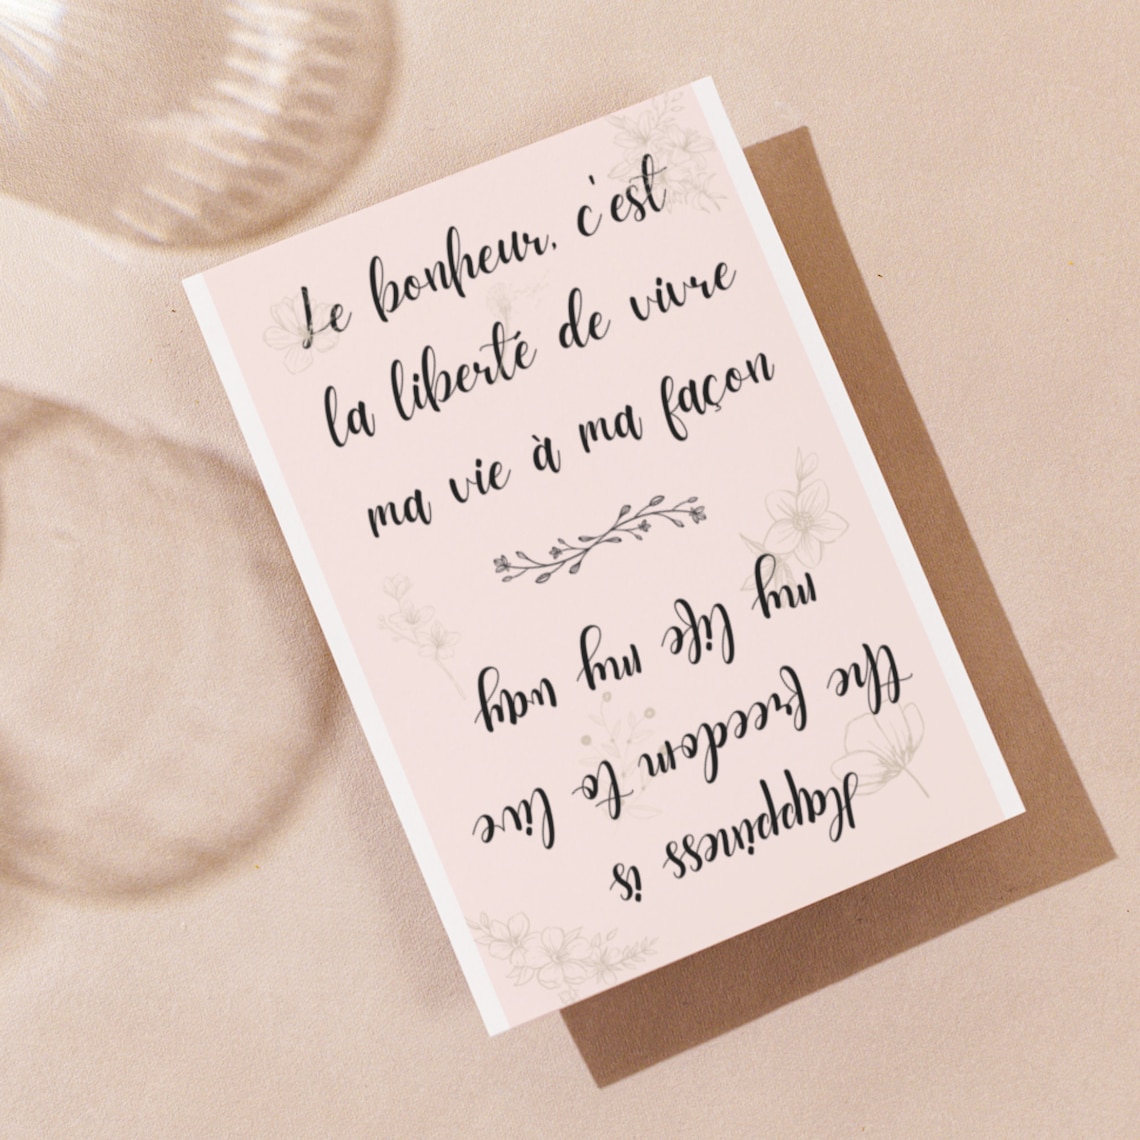 Le bonheur, c'est
la liberté de vivre
ma vie à ma façon
Happiness is
the freedom to live
my life my way